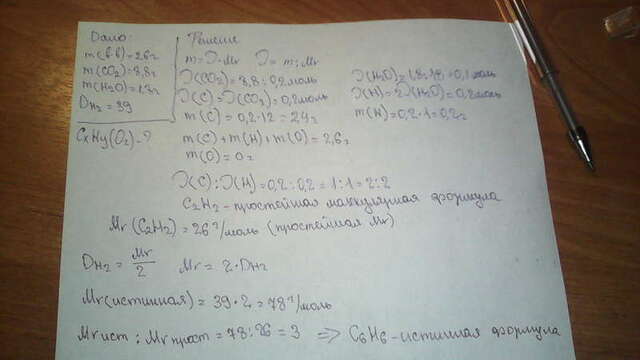 Дано:
m(в-в)=2,6г
m(CO₂)=8,8г
m(H₂O)=1,8г
DH₂=39
CxHy(Oz)-?
Решение
m=ν·Mr ν=m:Mr
ν(CO₂)=8,8:0,2моль
ν(C)=ν(CO₂)=0,2моль
m(C)=0,2·12=2,4г
ν(H₂O)=1,8:18=0,1моль
ν(H)=2ν(H₂O)=0,2моль
m(H)=0,2·1=0,2г
m(C)+m(H)+m(O)=2,6г
m(O)=0г
ν(C):ν(H)=0,2:0,2=1:1=2:2
C₂H₂-простейшая формула
Mr(C₂H₂)=26г/моль (простейшая Mr)
DH₂=Mr/2 Mr=2·DH₂
Mr(истинная)=39·2=78г/моль
Mrист:Mrпрост=78:26=3 => C₆H₆-истинная формула